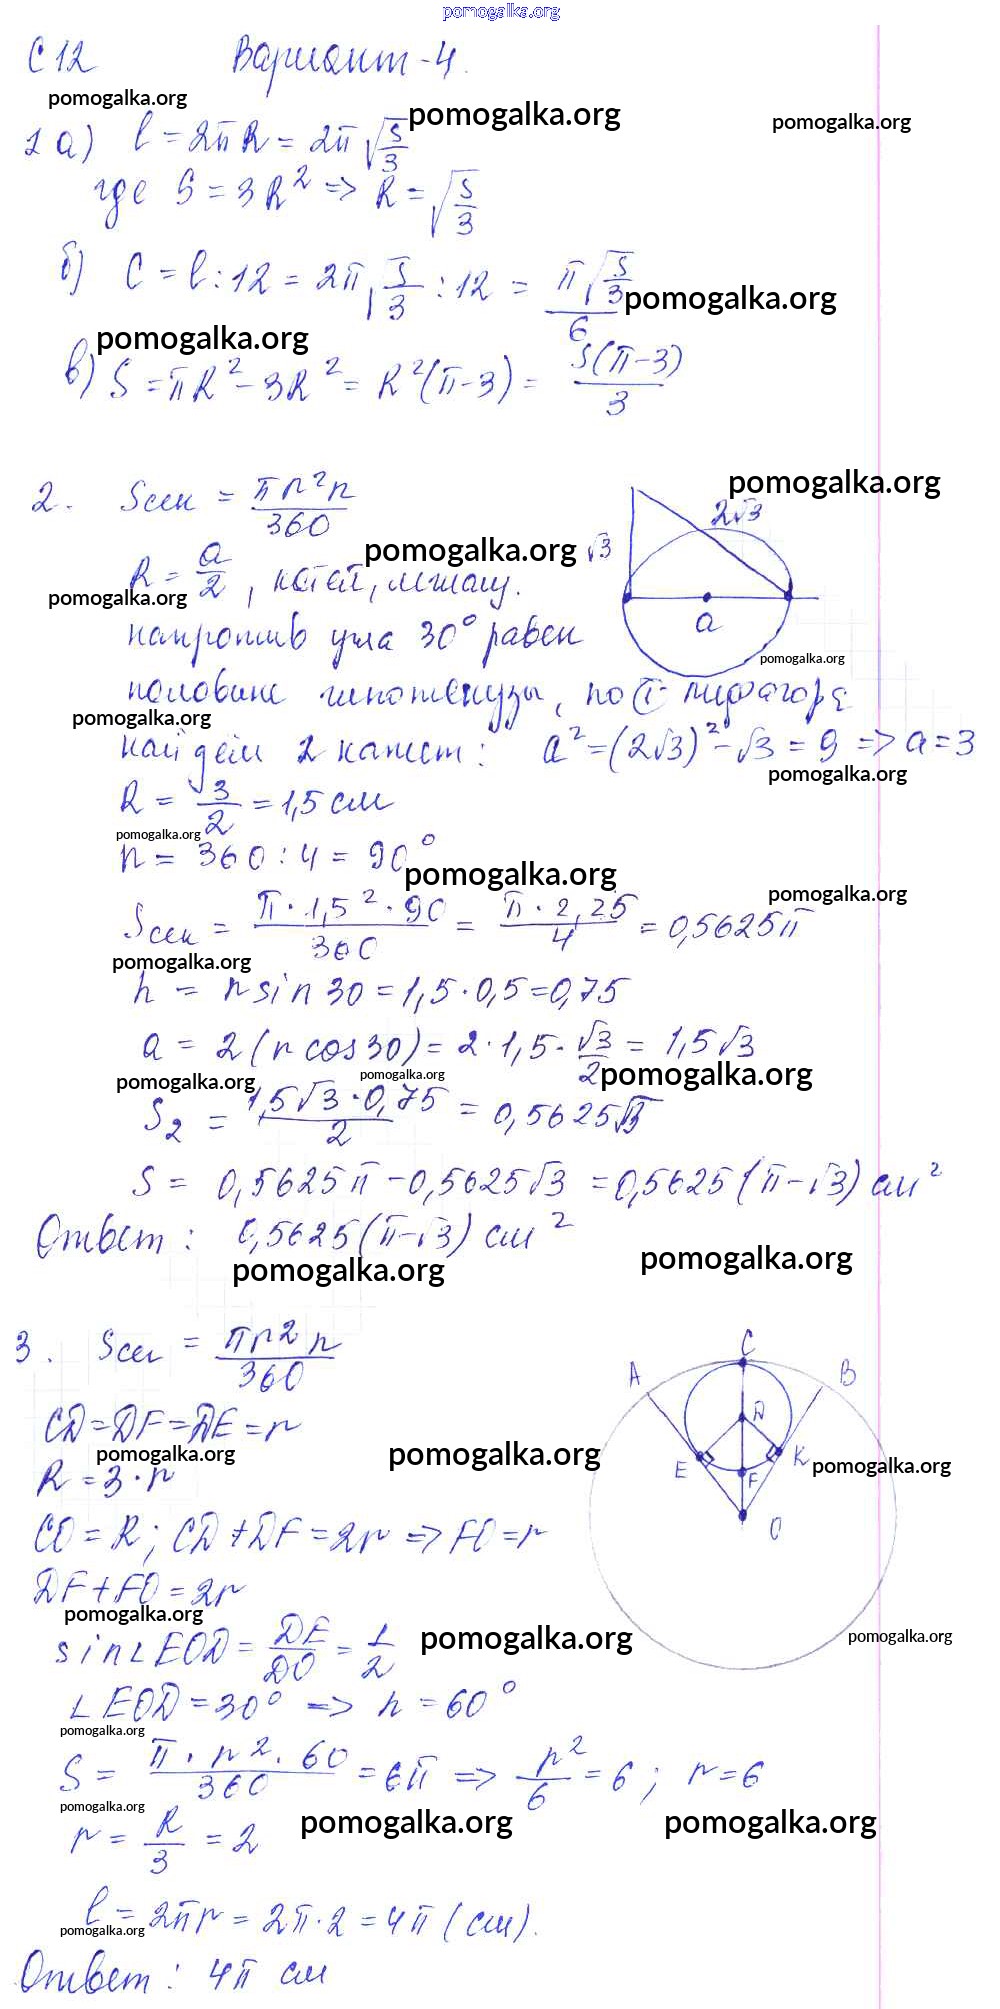 pomogalka.org
С 12 Вариант - 4.
pomogalka.org pomogalka.org pomogalka.org
1 а) l = 2πR = 2π√(S/3)
где S = 3R² => R = √(S/3)
б) C = l : 12 = 2π√(S/3) : 12 = π√(S/3)/6
pomogalka.org pomogalka.org
в) S = πR² - 3R² = R²(π-3) = S(π-3)/3
pomogalka.org
2. Sсек = πr²n/360
2√3
pomogalka.org √3
R = a/2, катет, лежащ.
pomogalka.org
a
напротив угла 30° равен
pomogalka.org
половине гипотенузы, по т. Пифагора
pomogalka.org
найдем 2 катет: a² = (2√3)² - √3 = 9 => a = 3
pomogalka.org
R = 3/2 = 1,5 см
pomogalka.org
n = 360 : 4 = 90°
pomogalka.org pomogalka.org
Sсек = π · 1,5² · 90/360 = π · 2,25/4 = 0,5625π
pomogalka.org
h = r sin 30 = 1,5 · 0,5 = 0,75
a = 2(r cos 30) = 2 · 1,5 · √3/2 = 1,5√3
pomogalka.org pomogalka.org pomogalka.org
S₂ = 1,5√3 · 0,75/2 = 0,5625√3
S = 0,5625π - 0,5625√3 = 0,5625(π-√3) см²
Ответ: 0,5625(π-√3) см²
pomogalka.org pomogalka.org
3. Sсек = πr²n/360
C
A B
D
E K
F
O
CD = DF = DE = r
pomogalka.org pomogalka.org pomogalka.org
R = 3 · r
CO = R; CD + DF = 2r => FO = r
DF + FO = 2r
pomogalka.org pomogalka.org pomogalka.org
sin∠EOD = DE/DO = 1/2
∠EOD = 30° => n = 60°
pomogalka.org
S = π · r² · 60/360 = 6π => r²/6 = 6; r = 6
pomogalka.org pomogalka.org pomogalka.org
r = R/3 = 2
l = 2πr = 2π · 2 = 4π (см).
pomogalka.org
Ответ: 4π см